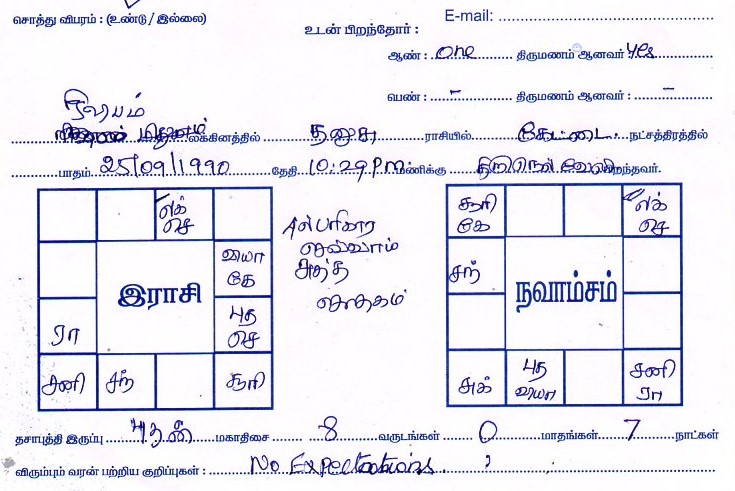 சொத்து விபரம் : (உண்டு / இல்லை)
E-mail:
உடன் பிறந்தோர் :
ஆண் : one திருமணம் ஆனவர் yes
பெண் : - திருமணம் ஆனவர் : -
ரிஷபம்
மிதுனம் லக்கினத்தில் தனுசு ராசியில் கேட்டை நட்சத்திரத்தில்
பாதம் 25/09/1990 தேதி 10:29 P.M. மணிக்கு திருநெல்வேலி பிறந்தவர்.
லக்
செ
வியா
கே
இராசி
ரா
புத
சனி
சந்
சூரி
பரிகார
ஜாதகம்
சூரி
கே
லக்
செ
சந்
நவாம்சம்
புத
வியா
சனி
ரா
தசாபுத்தி இருப்பு புதன் மகாதிசை 8 வருடங்கள் 0 மாதங்கள் 7 நாட்கள்
விரும்பும் வரன் பற்றிய குறிப்புகள் : No Expectations.